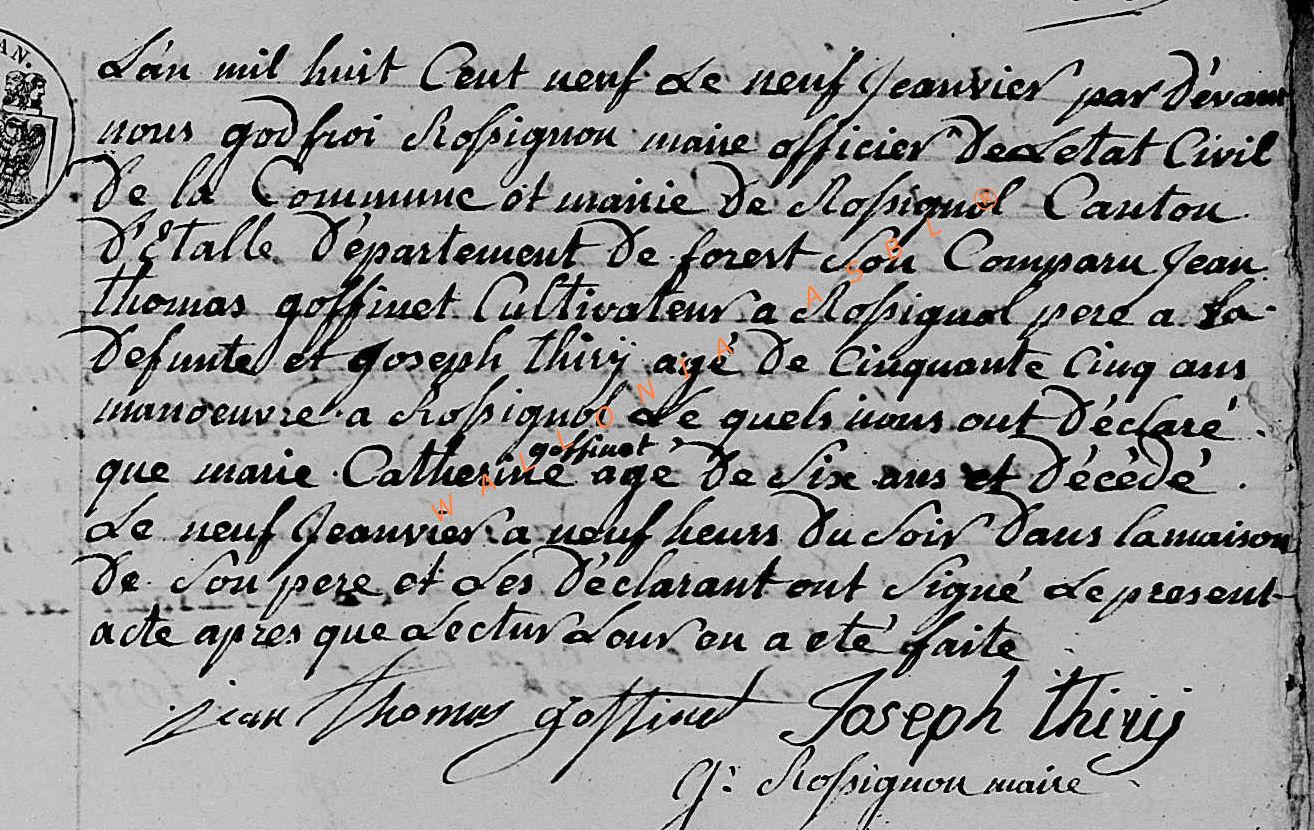 AN.
L'an mil huit Cent neuf Le neuf Jeanvier par dévant
nous godfroi Rossignon maire officier De Letat Civil
De la Commune et mairie De Rossignol Canton
D'Etalle Département De forest Son Comparu Jean
thomas goffinet Cultivateur a Rossignol pere a la
Defunte et joseph thirÿ agé De Cinquante Cinq ans
manoeuvre a Rossignol Le quels nous ont Déclaré
goffinet
que marie Catherine agé De Six ans et Décédé
Le neuf Jeanvier a neuf heurs Du Soir Dans la maison
De Son pere et Les Déclarant ont Signé Le present
acte apres que Lectur Leur en a eté faite
jean Thomas goffinet Joseph thirij
g: Rossignon maire
WALLONIA ASBL ®